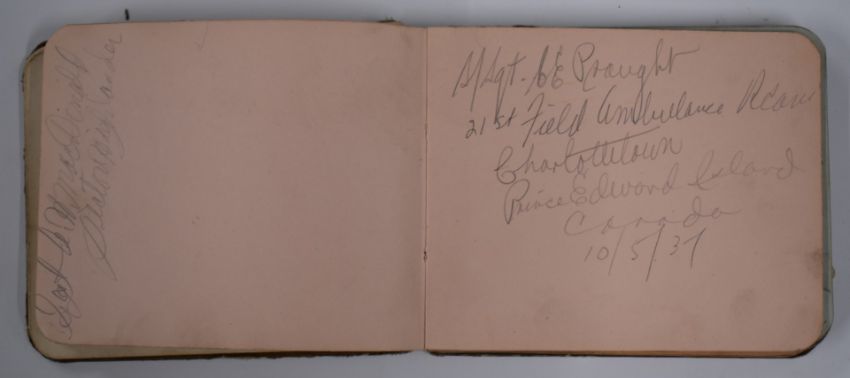 Sgt A MacDonald
Seaforth Highlander
S/Sgt. C E Prought
21st Field Ambulance RCAMC
Charlottetown
Prince Edward Island
Canada
10/5/37